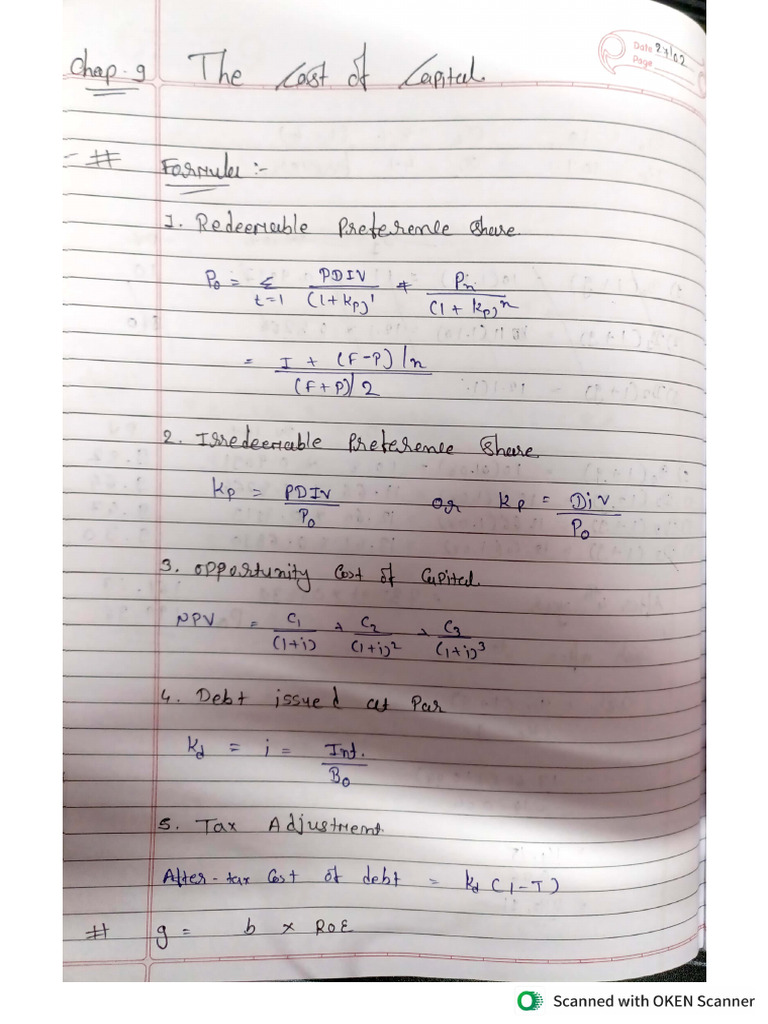 Date 27/02
Page
Chap. 9 The Cost of Capital
# Formula :-
1. Redeemable Preference Share
P₀ = Σ t=1 PDIV/(1+kp)¹ + Pn/(1+kp)ⁿ
= I + (F-P)/n / (F+P)/2
2. Irredeemable Preference Share
kp = PDIV/P₀ or kp = Div./P₀
3. Opportunity Cost of Capital
NPV = C₁/(1+i) + C₂/(1+i)² + C₃/(1+i)³
4. Debt issued at Par
kd = i = Int./B₀
5. Tax Adjustment
After-tax Cost of debt = kd (1-T)
# g = b × ROE
Scanned with OKEN Scanner